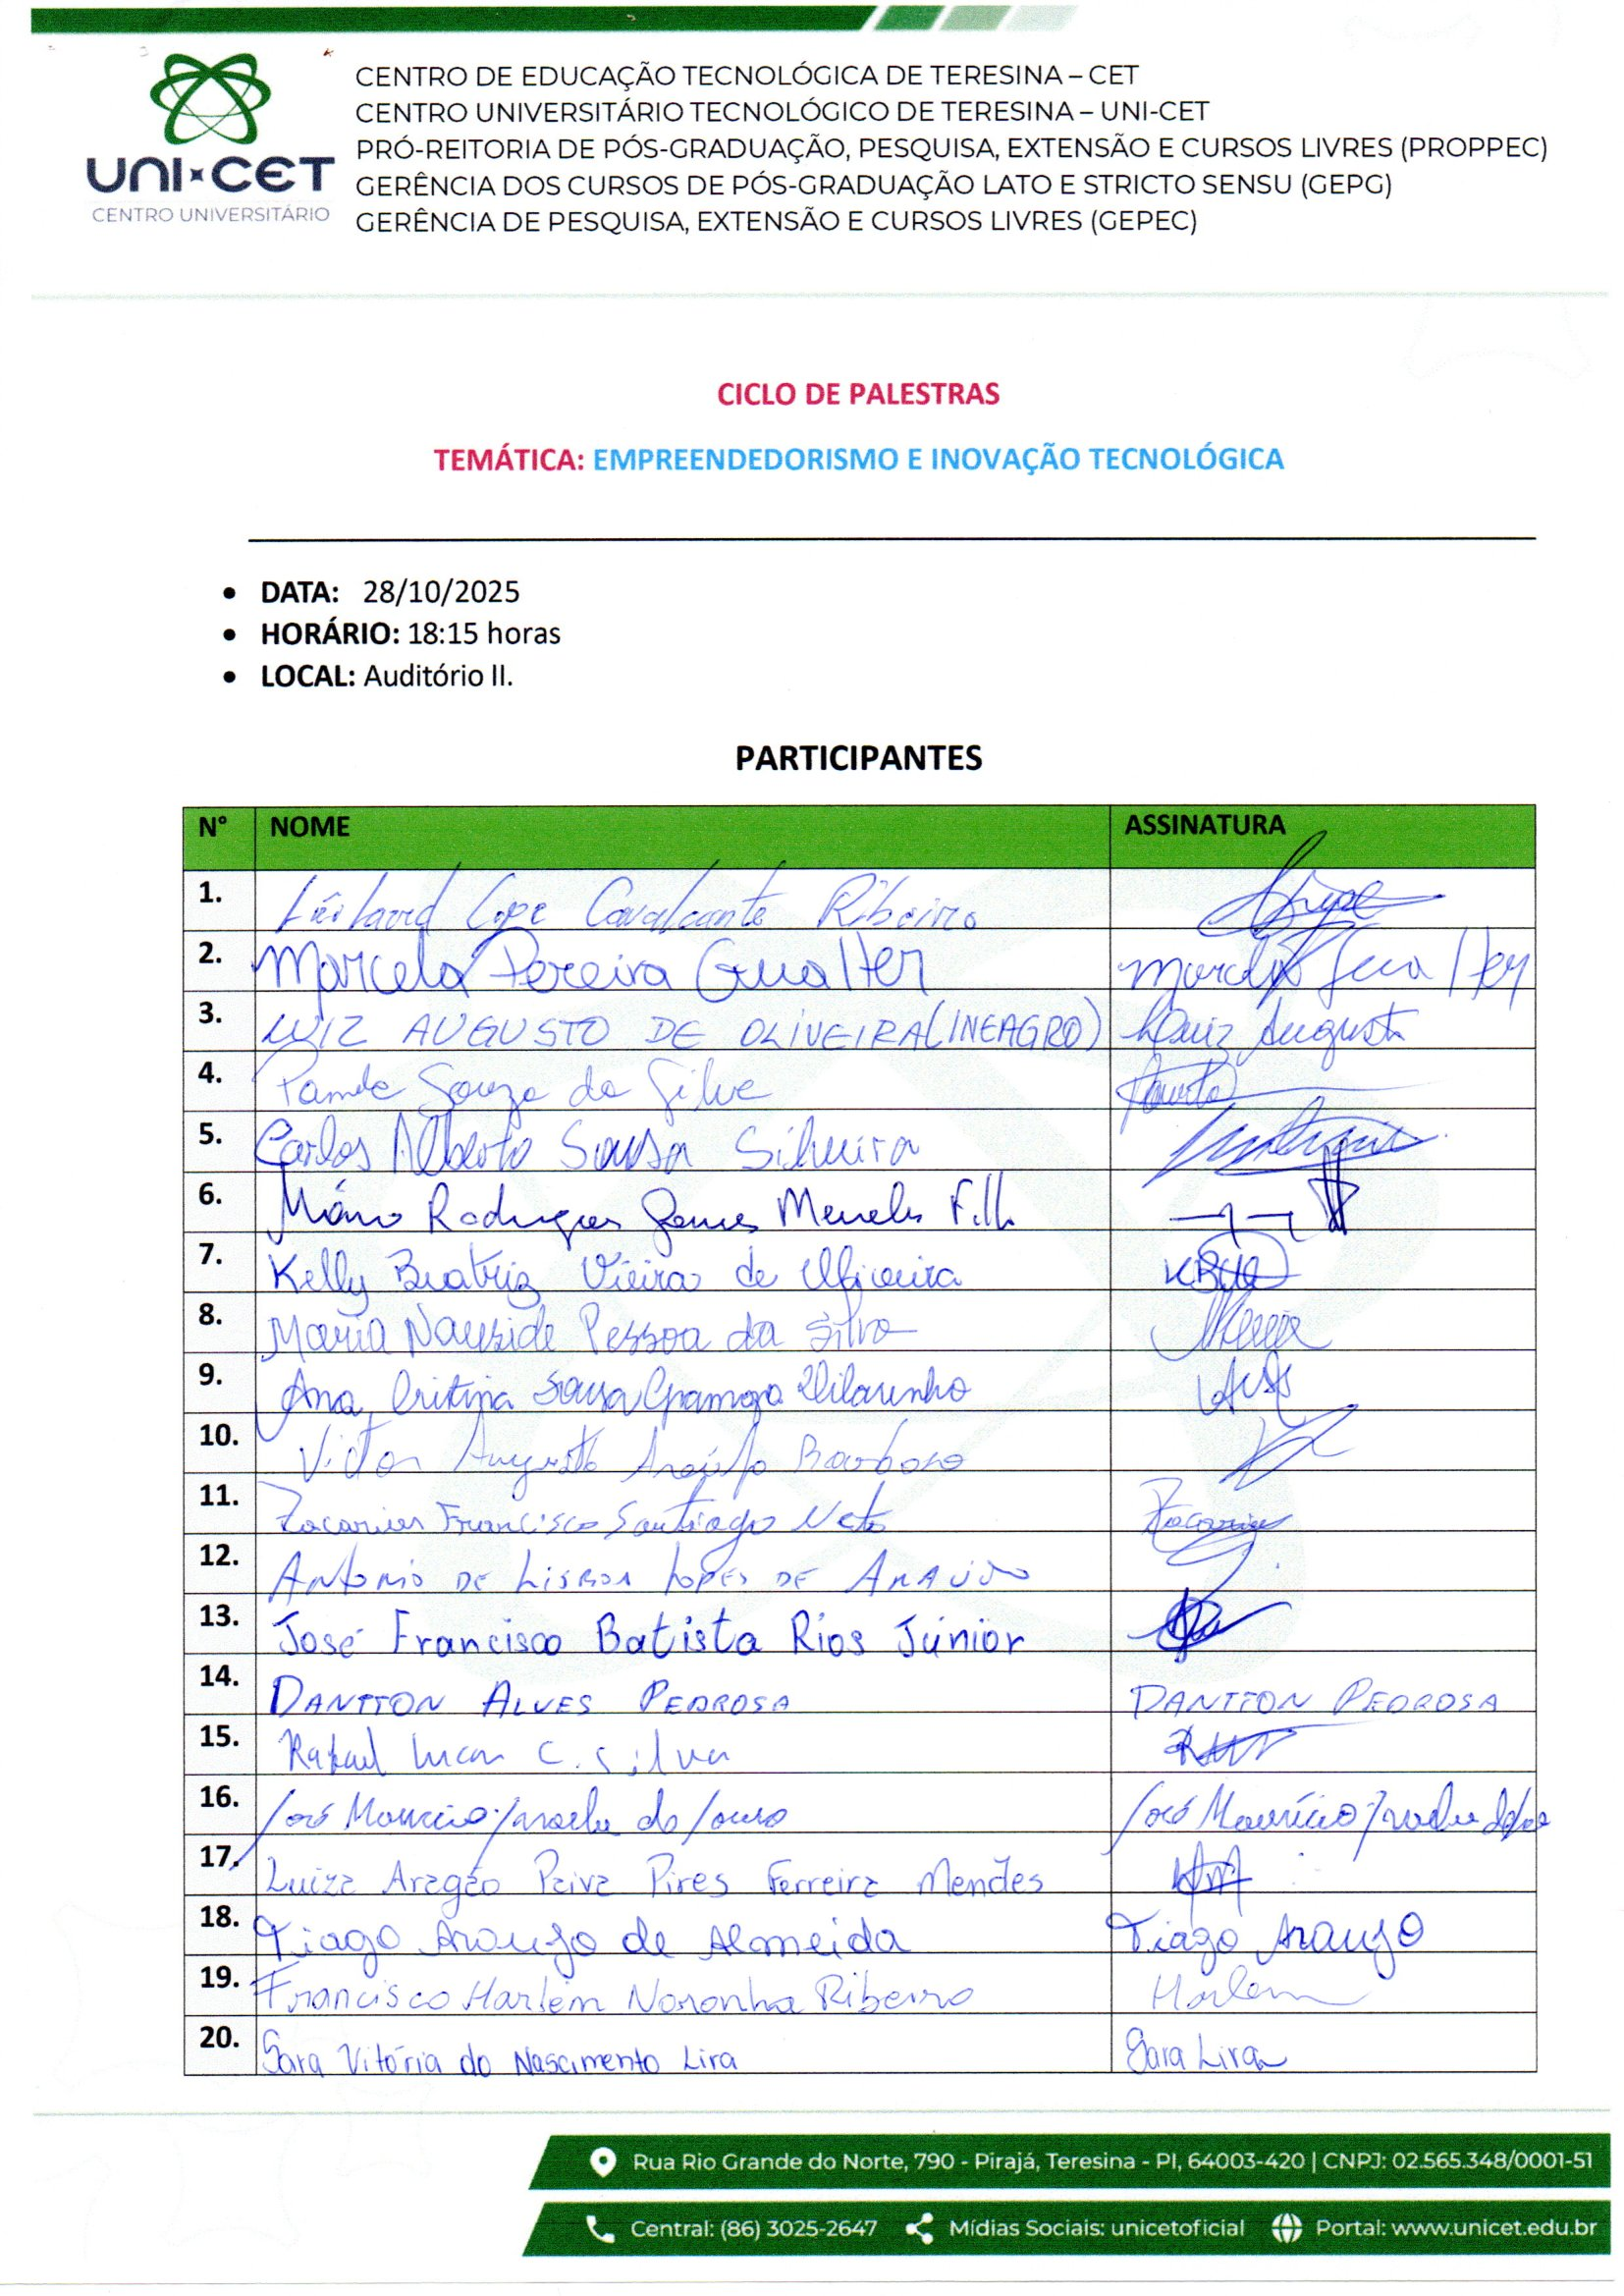 UNI-CET
CENTRO UNIVERSITÁRIO
CENTRO DE EDUCAÇÃO TECNOLÓGICA DE TERESINA – CET
CENTRO UNIVERSITÁRIO TECNOLÓGICO DE TERESINA – UNI-CET
PRÓ-REITORIA DE PÓS-GRADUAÇÃO, PESQUISA, EXTENSÃO E CURSOS LIVRES (PROPPEC)
GERÊNCIA DOS CURSOS DE PÓS-GRADUAÇÃO LATO E STRICTO SENSU (GEPG)
GERÊNCIA DE PESQUISA, EXTENSÃO E CURSOS LIVRES (GEPEC)
CICLO DE PALESTRAS
TEMÁTICA: EMPREENDEDORISMO E INOVAÇÃO TECNOLÓGICA
• DATA: 28/10/2025
• HORÁRIO: 18:15 horas
• LOCAL: Auditório II.
PARTICIPANTES
N° NOME ASSINATURA
1. Cavalcante Ribeiro
2. Marcela Pereira Gualter Gualter
3. LUIZ AUGUSTO DE OLIVEIRA (INEAGRO) Luiz Augusto
4. Souza da Silva
5. Carlos Alberto Sousa Silveira
6. Mário Rodrigues Gomes Filho
7. Kelly Beatriz Vieira de Oliveira
8. Maria Pessoa da Silva
9. Ana Cristina Sousa Vilarinho
10. Victor Augusto Araújo Barbosa
11. Zacarias Francisco Santiago Neto Zacarias
12. ANTONIO DE LISBOA LOPES DE ARAÚJO
13. José Francisco Batista Rios Júnior
14. DANTTON ALVES PEDROSA DANTTON PEDROSA
15. Rafael Lucas C. Silva
16. José Maurício José Maurício
17. Luiza Aragão Paiva Pires Ferreira Mendes
18. Tiago Araujo de Almeida Tiago Araujo
19. Francisco Harlem Noronha Ribeiro Harlem
20. Sara Vitória do Nascimento Lira Sara Lira
Rua Rio Grande do Norte, 790 - Pirajá, Teresina - PI, 64003-420 | CNPJ: 02.565.348/0001-51
Central: (86) 3025-2647 Mídias Sociais: unicetoficial Portal: www.unicet.edu.br